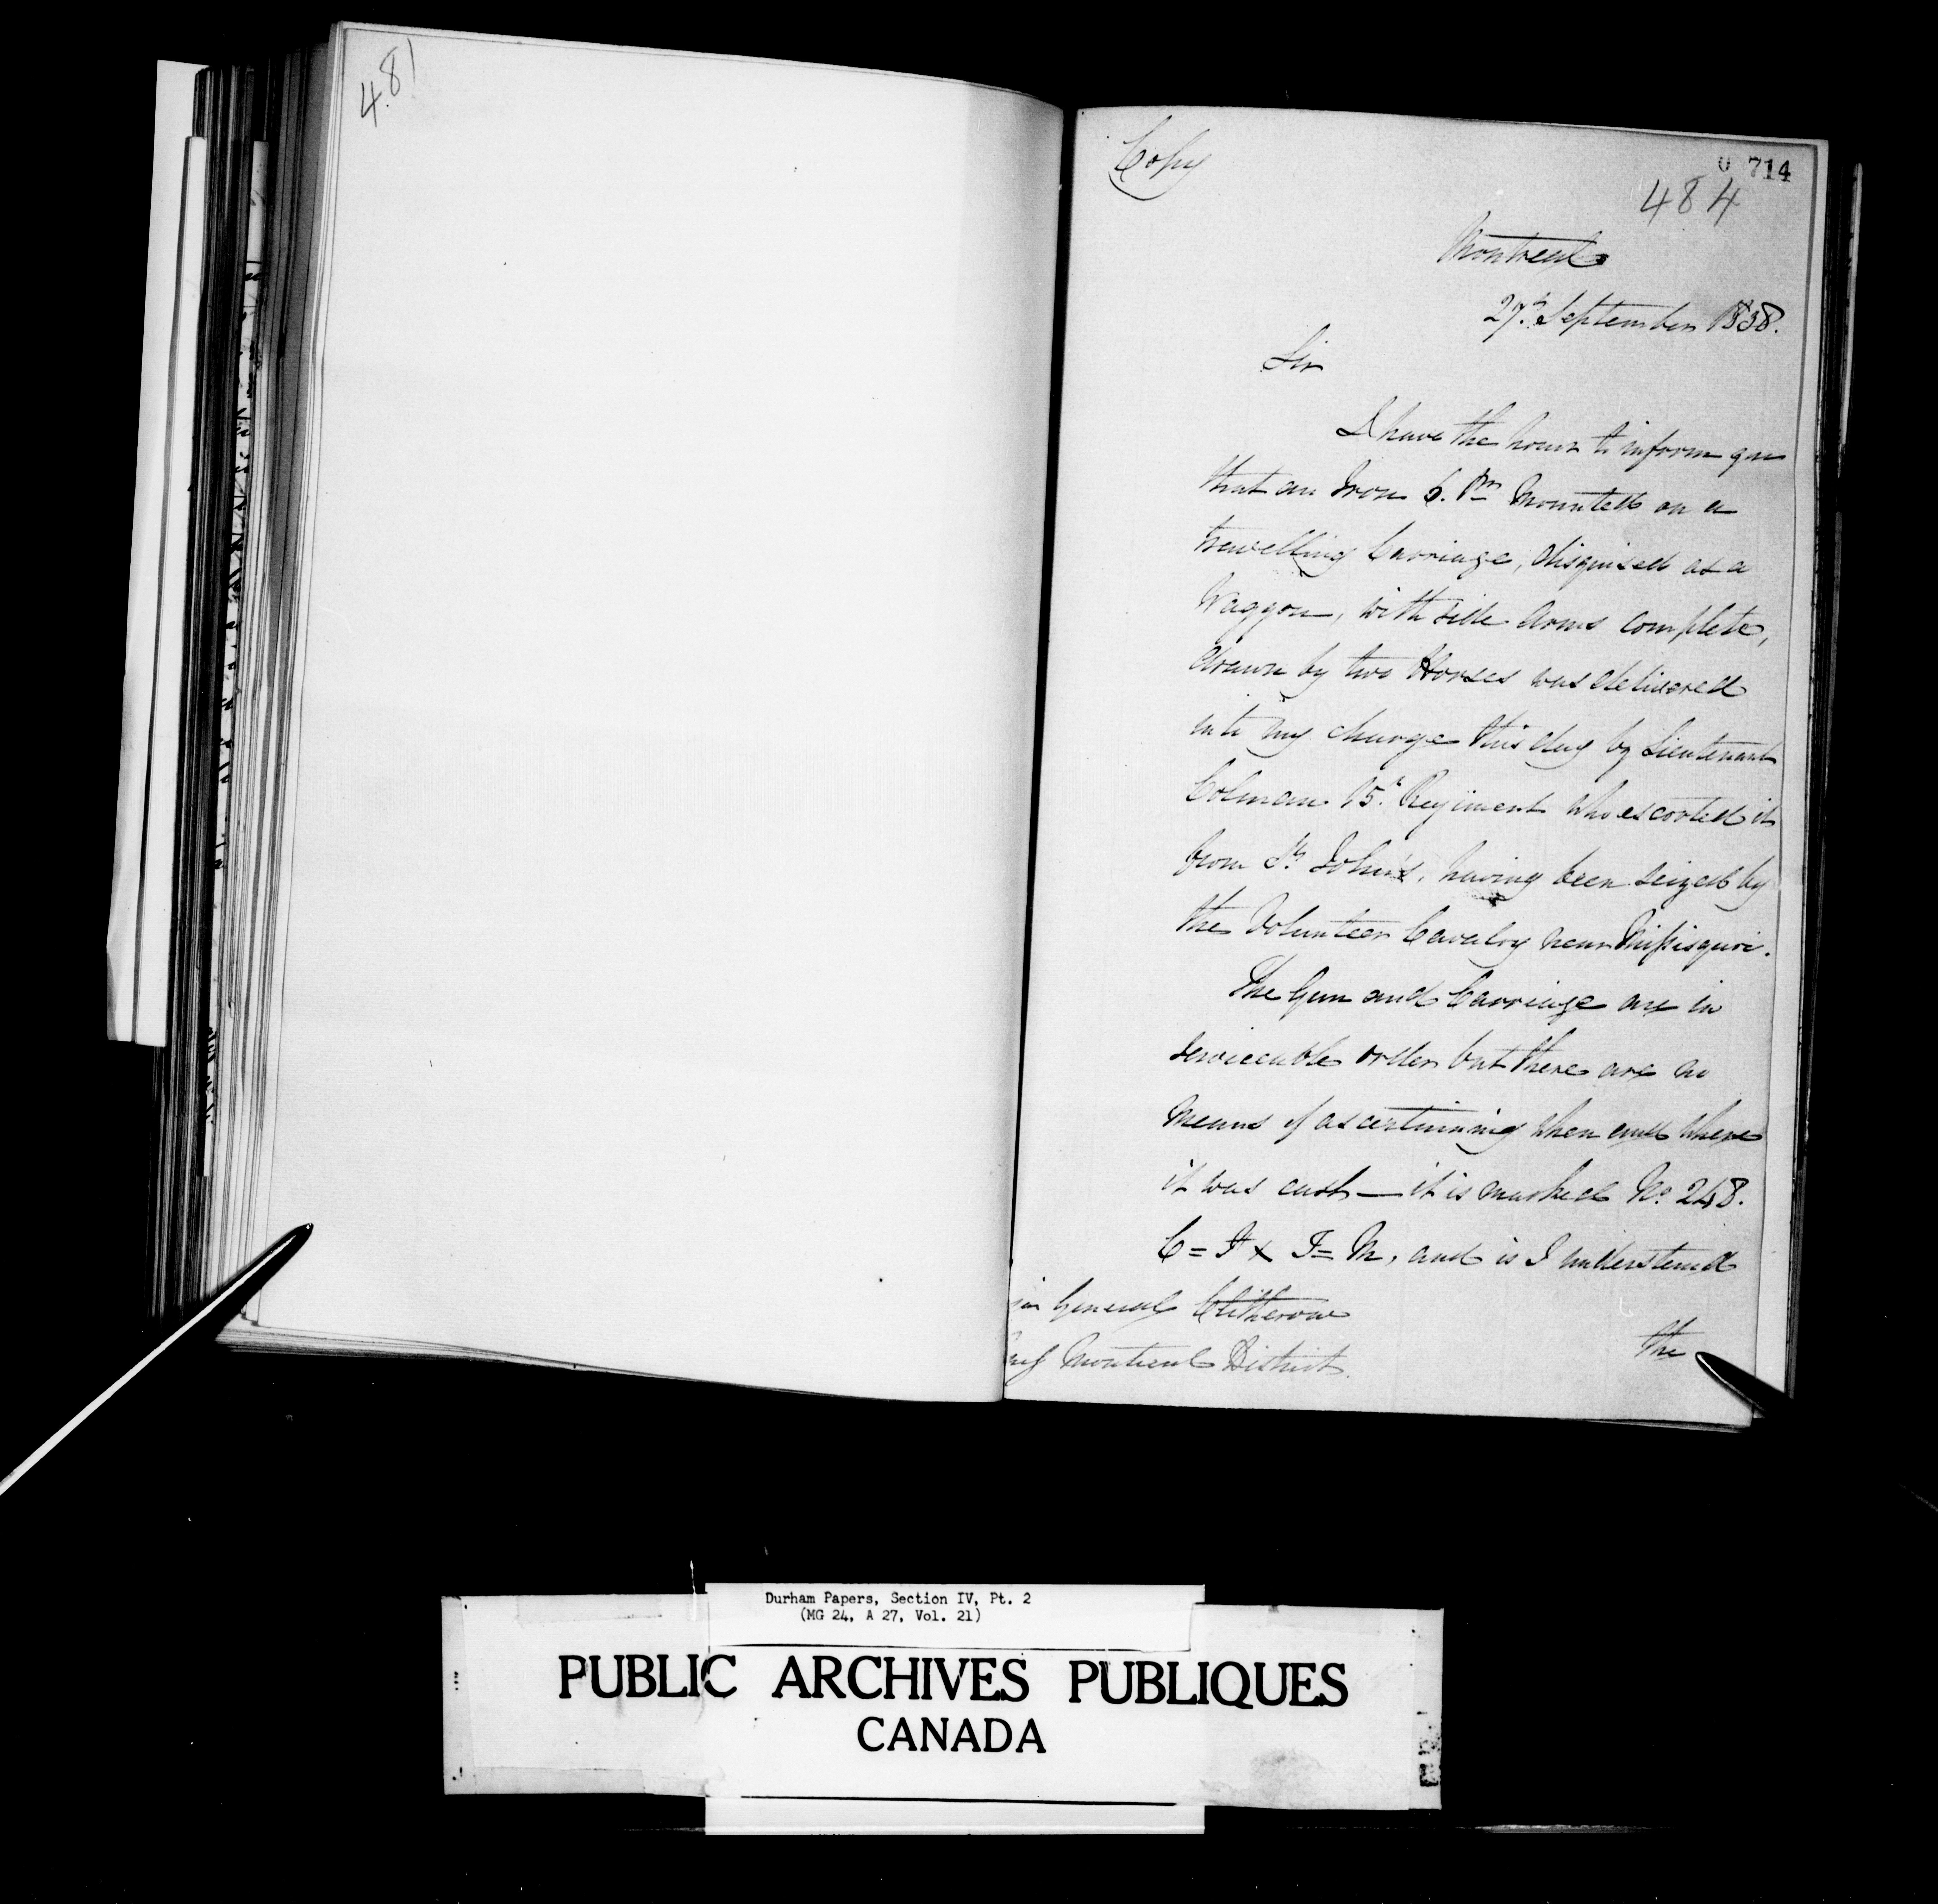 481
Copy
0 714
484
Montreal
27th September 1838.
Sir
I have the honor to inform you
that an Iron 6. Pr. Mounted on a
travelling Carriage, disguised as a
Waggon, with side Arms complete,
drawn by two Horses was delivered
into my charge this day by Lieutenant
Colman 15th Regiment who escorted it
from St. John's, having been seized by
the Volunteer Cavalry near Missisquoi.
The Gun and Carriage are in
serviceable order but there are no
means of ascertaining when and where
it was cast — it is marked No. 248.
C = F x F = M, and is I understand
General Clitherow
Montreal District.
the
Durham Papers, Section IV, Pt. 2
(MG 24, A 27, Vol. 21)
PUBLIC ARCHIVES PUBLIQUES
CANADA